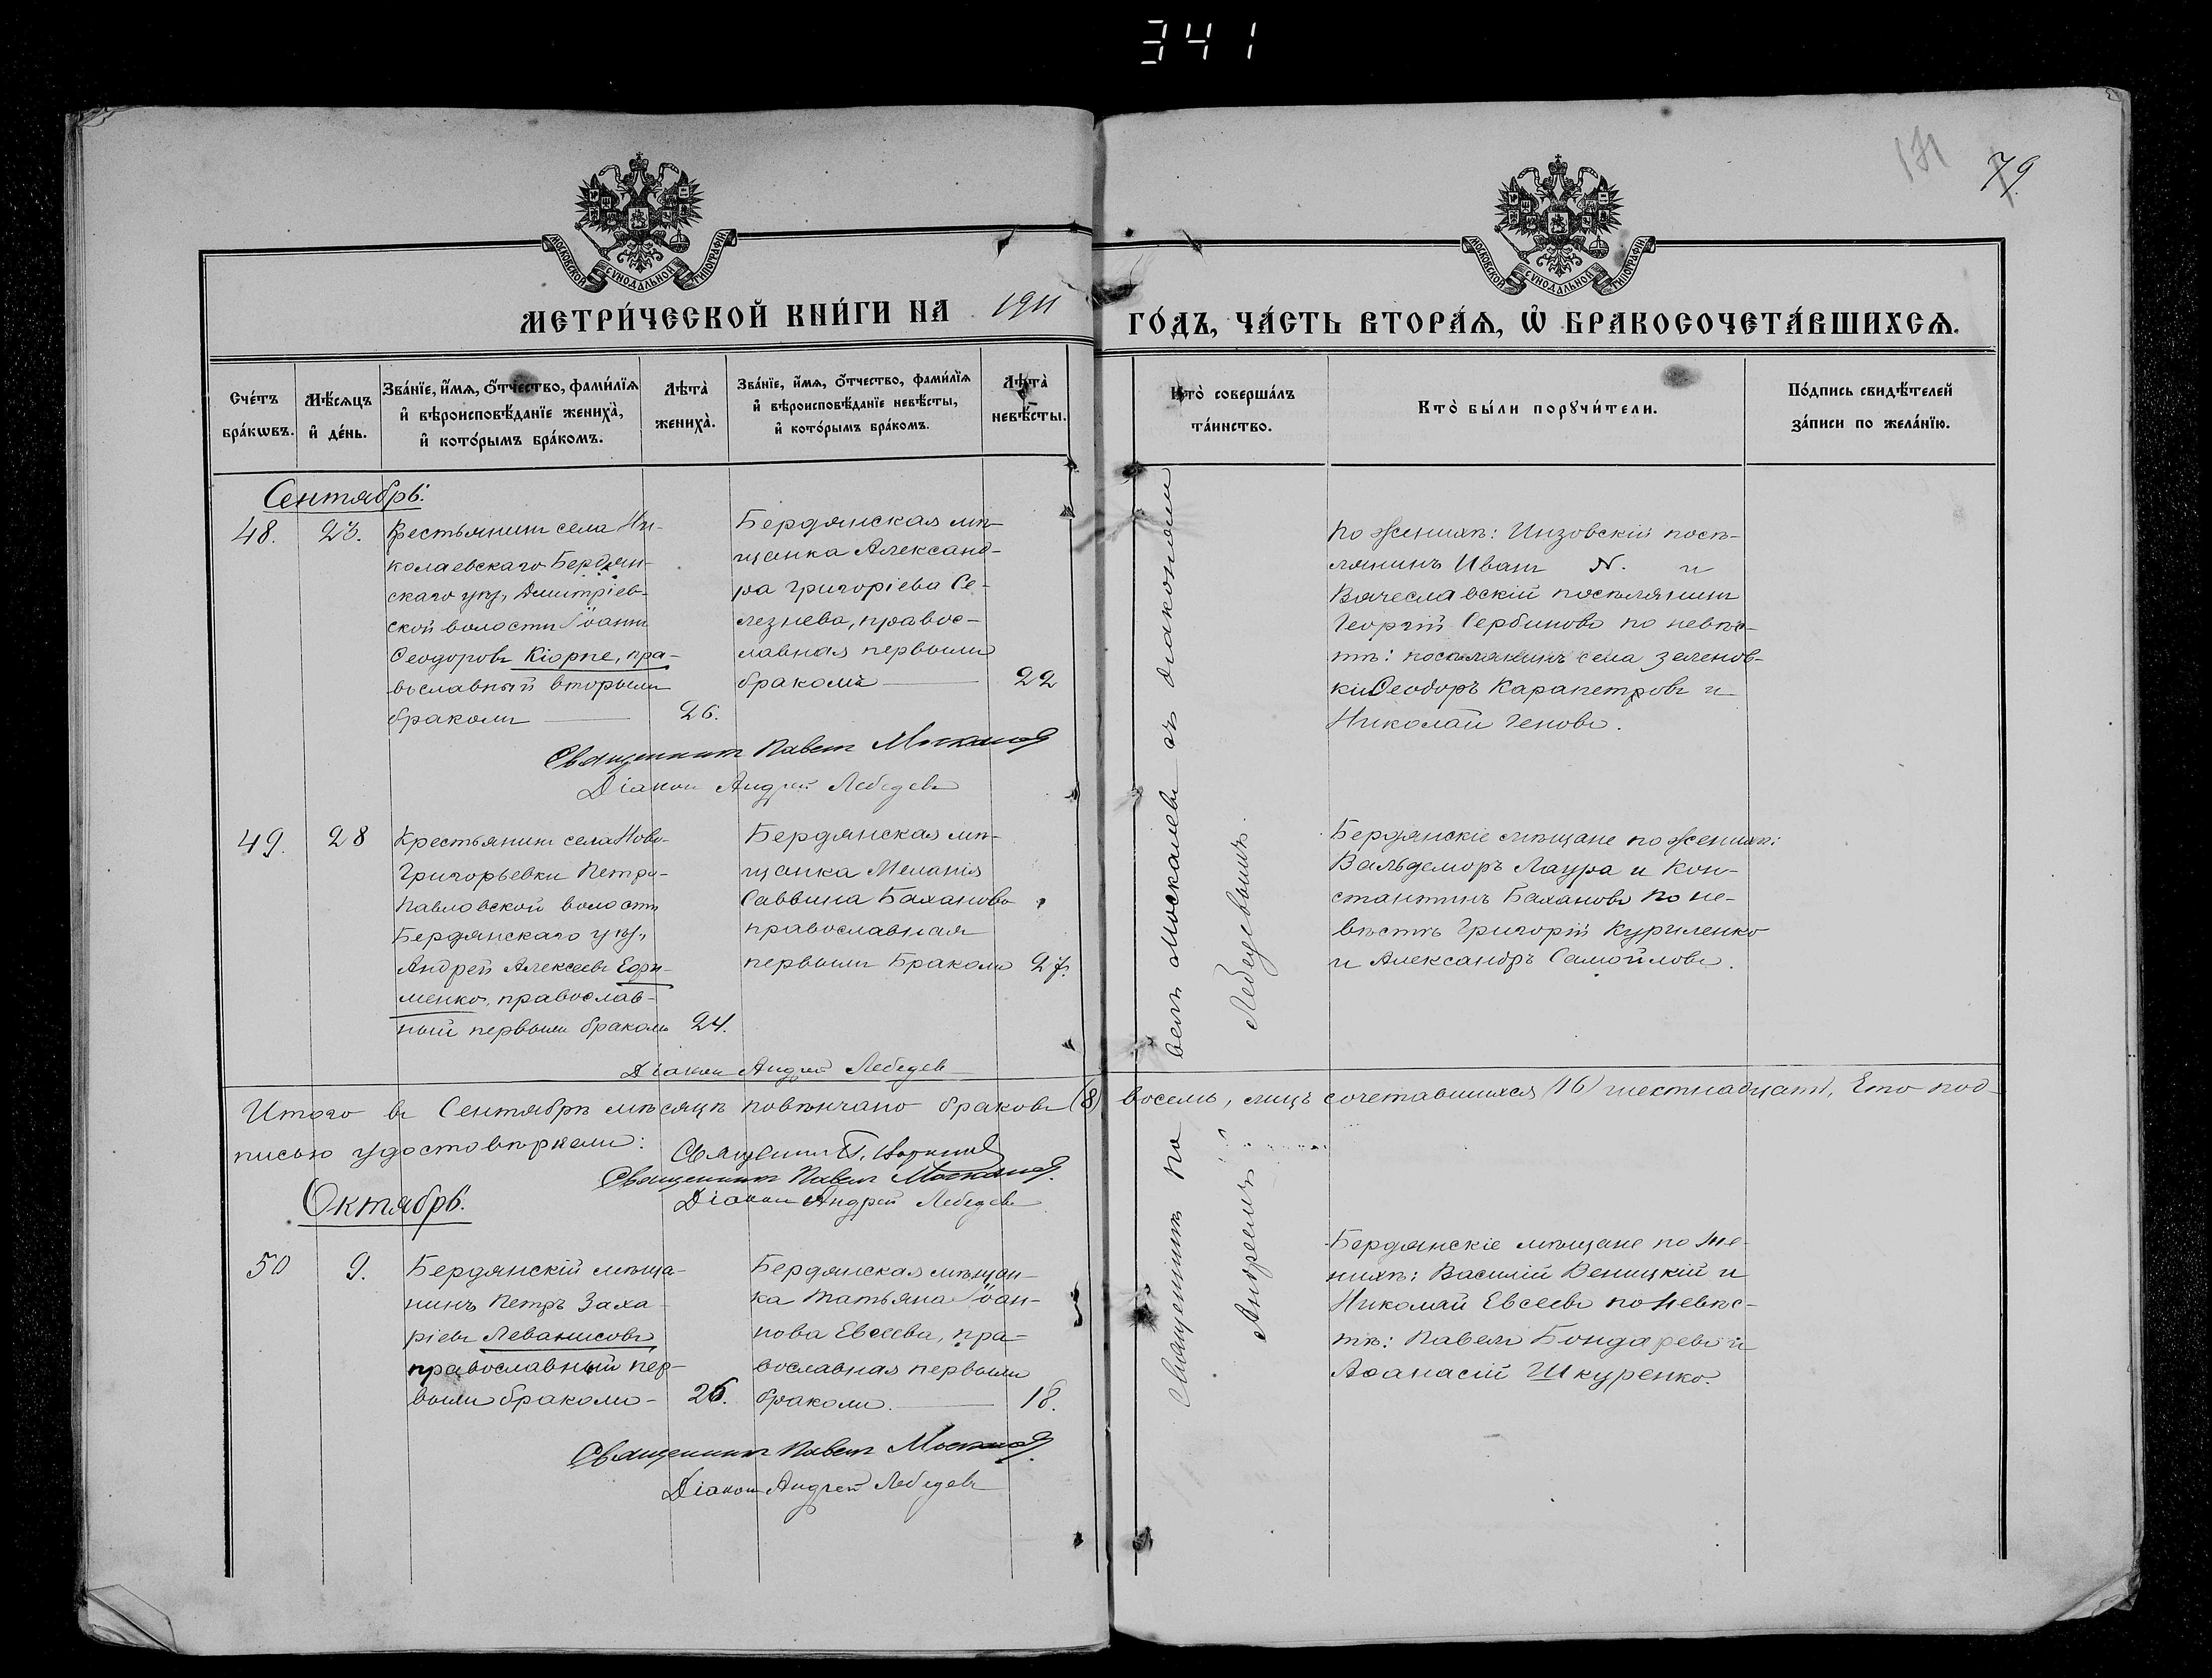 341
171
79
МОСКОВСКОЙ СѴНОДАЛЬНОЙ ТИПОГРАФІИ
МОСКОВСКОЙ СѴНОДАЛЬНОЙ ТИПОГРАФІИ
МЕТРИ́ЧЕСКОЙ КНИ́ГИ НА 1911 ГО́ДЪ, ЧА́СТЬ ВТОРА́Ѧ, Ѡ҆ БРАКОСОЧЕТА́ВШИХСѦ.
Сче́тъ бра́кѡвъ.
Мѣ́сѧцъ и҆ де́нь.
Зва́нїе, и҆́мѧ, ѻ҆́тчество, фами́лїѧ и҆ вѣроисповѣ́данїе жениха̀, и҆ кото́рымъ бра́комъ.
Лѣта̀ жениха̀.
Зва́нїе, и҆́мѧ, ѻ҆́тчество, фами́лїѧ и҆ вѣроисповѣ́данїе невѣ́сты, и҆ кото́рымъ бра́комъ.
Лѣта̀ невѣ́сты.
Кто̀ соверша́лъ та́инство.
Кто̀ бы́ли порꙋчи́тели.
По́дпись свидѣ́телей за́писи по жела́нїю.
Сентябрь.
48.
23.
Крестьянинъ села Ни-
колаевскаго Бердян-
скаго уѣз., Дмитріев-
ской волости Іоаннъ
Ѳеодоровъ Кіорпе, пра-
вославный вторымъ
бракомъ
26.
Бердянская мѣ-
щанка Александ-
ра Григоріева Се-
лезнева, правос-
лавная первымъ
бракомъ
22
По женихѣ: Инзовскій посе-
лянинъ Иванъ N. и
Вячеславскій поселянинъ
Георгій Сербиновъ по невѣс-
тѣ: поселянинъ села Зеленов-
ки Ѳеодоръ Карапетровъ и
Николай Геновъ.
Священникъ Павелъ Москалевъ
Діаконъ Андрей Лебедевъ
49.
28
Крестьянинъ села Ново-
Григорьевки Петро-
Павловской волости
Бердянскаго уѣз.,
Андрей Алексеевъ Ефи-
менко, православ-
ный первымъ бракомъ
24.
Бердянская мѣ-
щанка Меланія
Саввина Баханова
православная
первымъ бракомъ
27.
Бердянскіе мѣщане по женихѣ:
Вальдемаръ Лаура и Кон-
стантинъ Бахановъ по не-
вѣстѣ Григорій Куриленко
и Александръ Самойловъ.
Діаконъ Андрей Лебедевъ
Итого въ Сентябрѣ мѣсяцѣ повѣнчано браковъ (8) восемь, лицъ сочетавшихся (16) шестнадцать, Что под-
писью удостовѣряемъ:
Священникъ
Священникъ Павелъ Москалевъ.
Діаконъ Андрей Лебедевъ
Октябрь.
50
9.
Бердянскій мѣща-
нинъ Петръ Заха-
ріевъ Леванисовъ
православный пер-
вымъ бракомъ
26.
Бердянская мѣщан-
ка Татьяна Іоан-
нова Евсеева, пра-
вославная первымъ
бракомъ.
18.
Бердянскіе мѣщане по же-
нихѣ: Василій Веницкій и
Николай Евсеевъ по невѣс-
тѣ: Павелъ Бондаревъ и
Аѳанасій Шкуренко.
Священникъ Павелъ Москалевъ.
Діаконъ Андрей Лебедевъ
Священникъ Павелъ Москалевъ съ діакономъ
Андреемъ Лебедевымъ.